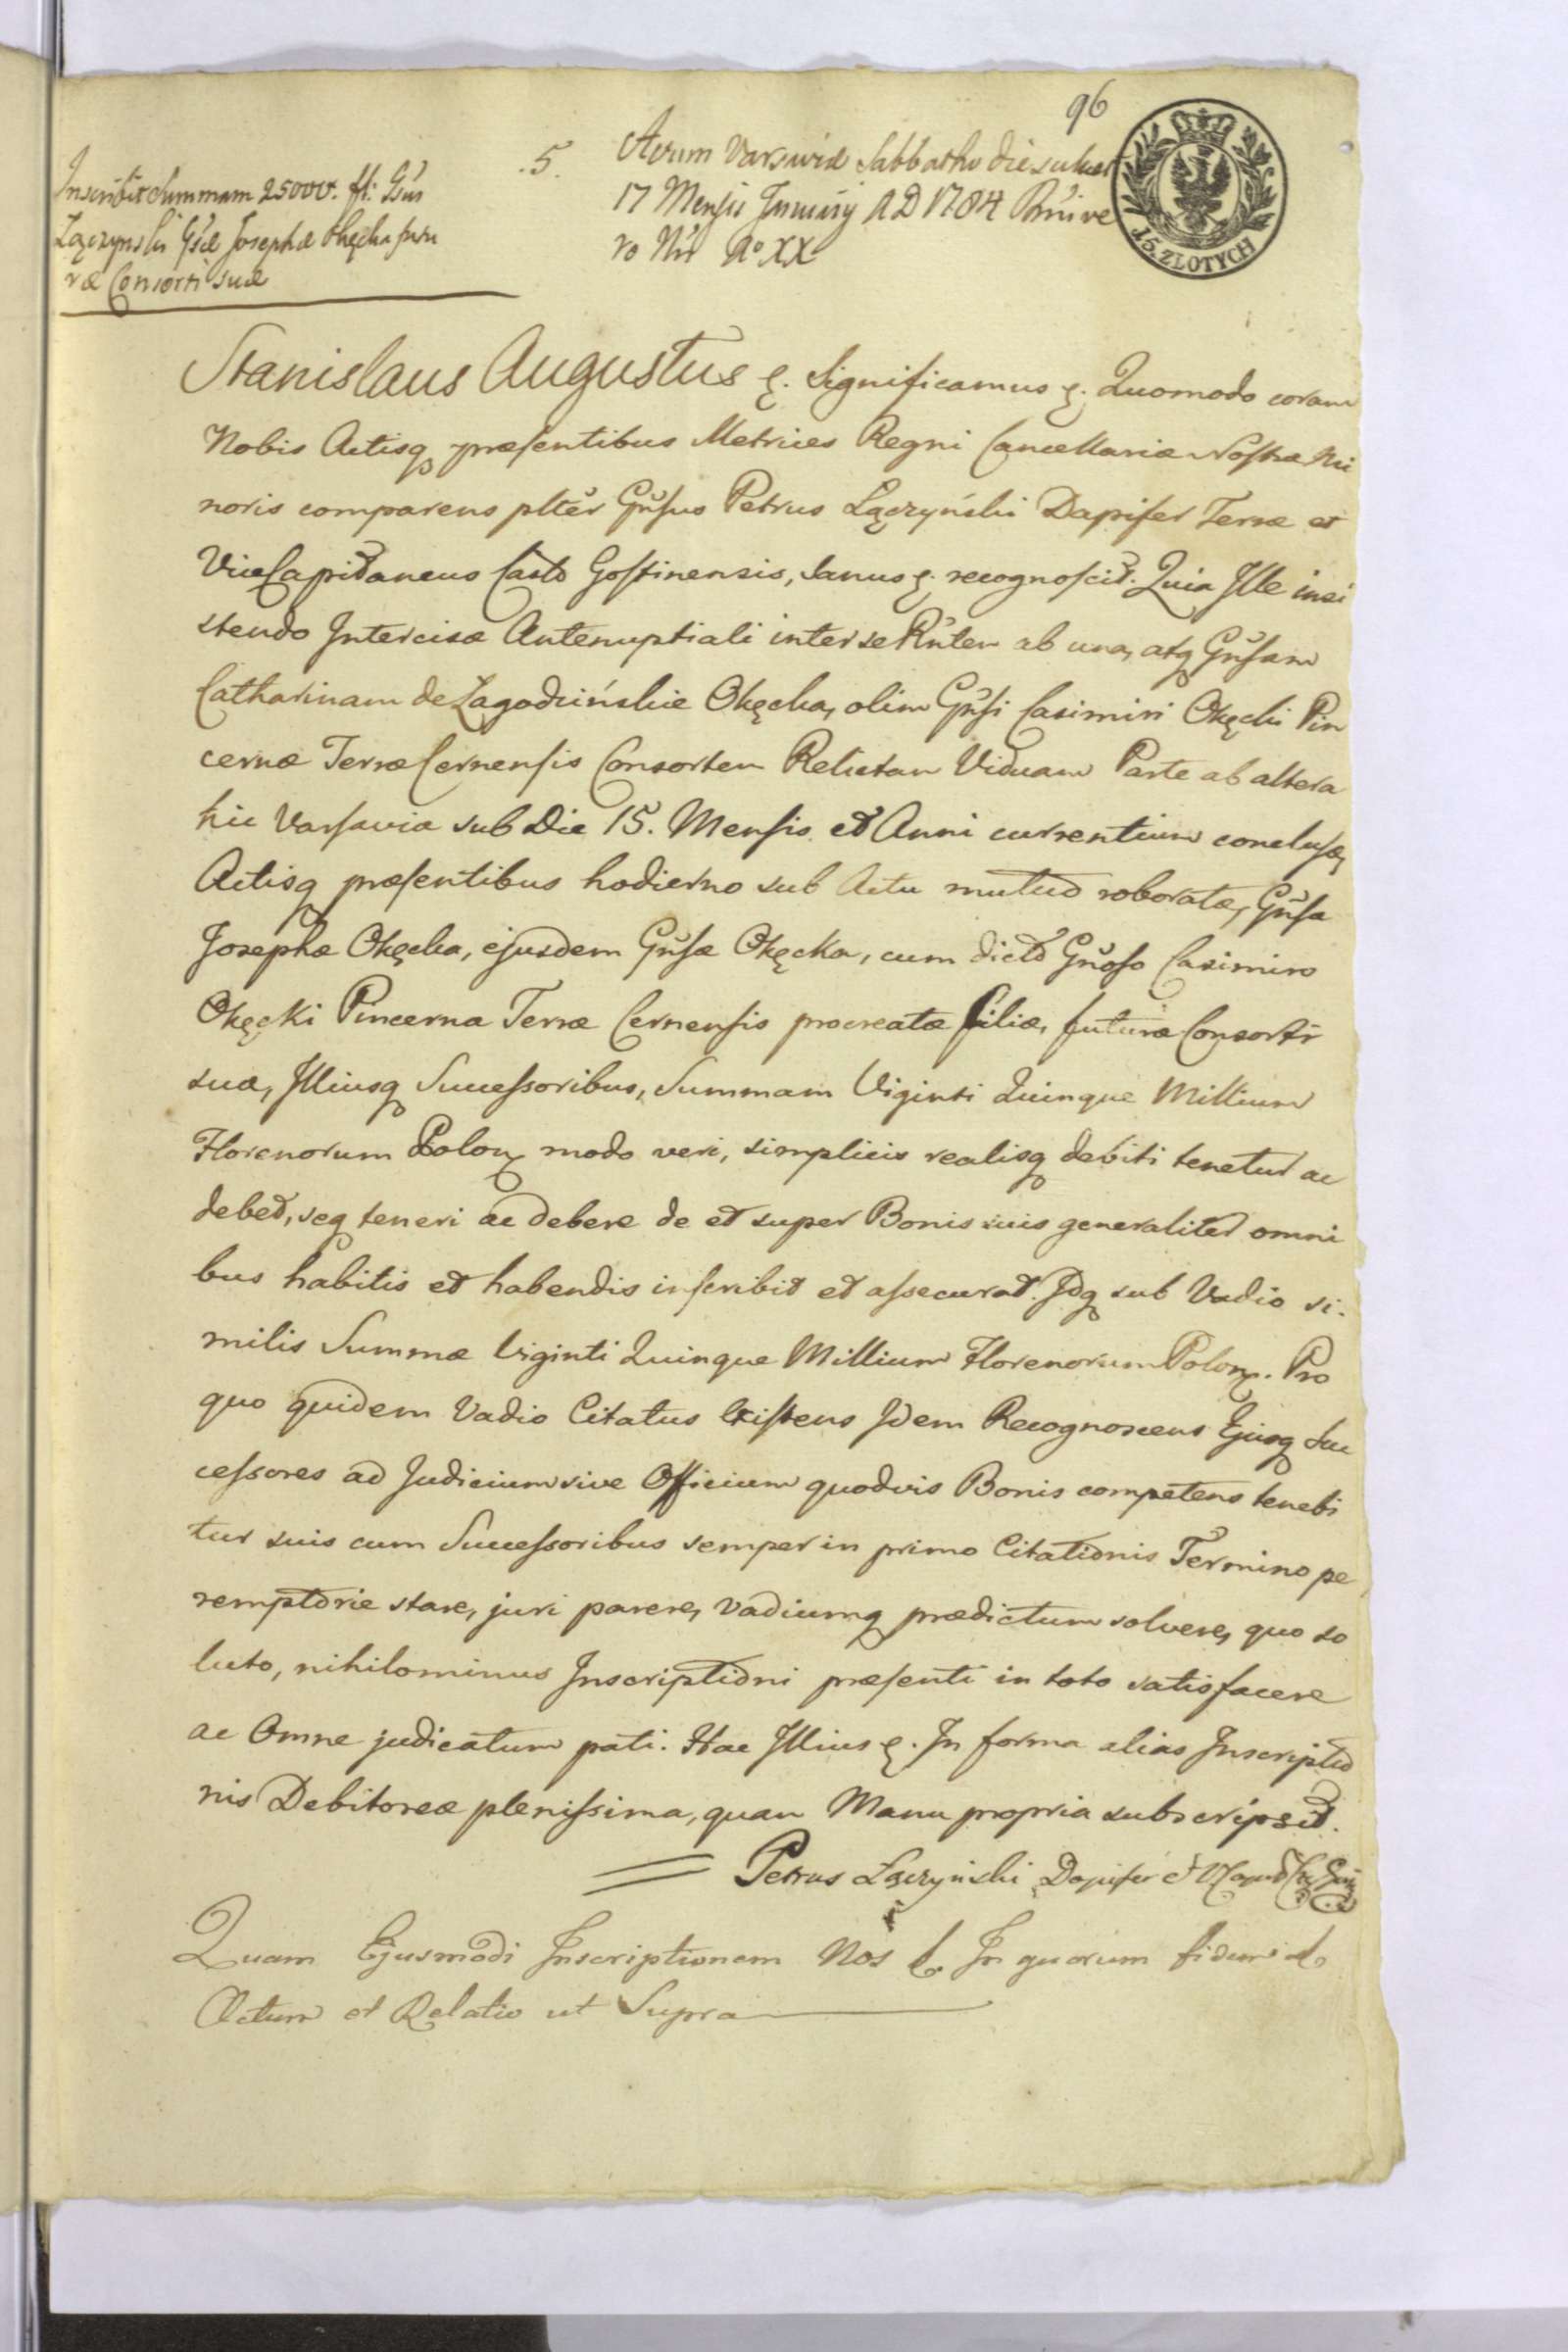 96
Inscribit Summam 25000. fl: Gsus
Łączynski Gsæ Josephæ Okęcka futu
ræ Consorti suæ
.5.
Actum Varsaviæ Sabbatho die
17 Mensis Januarij AD 1784
ro Nri Ao XX
15. ZLOTYCH
Stanislaus Augustus &. Significamus &. Quomodo coram
Nobis Actisq præsentibus Metrices Regni Cancellariæ Nostræ Mi
noris comparens plter Gnsus Petrus Łączyński Dapifer Terræ et
ViceCapitaneus Casts Gostinensis, sanus &. recognoscit. Quia Ille insi
stendo Intercisæ Antenuptiali inter se Rntem ab una, atq Gnsam
Catharinam de Zagodzińskie Okęcka, olim Gnsi Casimiri Okęcki Pin
cernæ Terræ Cernensis Consortem Relictam Viduam Parte ab altera
hic Varsavia sub Die 15. Mensis et Anni currentium conclusæ,
Actisq præsentibus hodierno sub Actu mutuo roboratæ, Gnsa
Josephæ Okęcka, ejusdem Gnsæ Okęcka, cum dicto Gnoso Casimiro
Okęcki Pincerna Terræ Cernensis procreatæ filiæ, futuræ Consorti
suæ, Illiusq Successoribus, Summam Viginti Quinque Millium
Florenorum Polon modo veri, simplicis realisq debiti tenetur ac
debet, seq teneri ac debere de et super Bonis suis generaliter omni
bus habitis et habendis inscribit et assecurat. Idq sub Vadio si.
milis Summæ Viginti Quinque Millium Florenorum Polon. Pro
quo quidem Vadio Citatus Existens Idem Recognoscens Ejusq Suc
cessores ad Judicium sive Officium quodvis Bonis competens tenebi
tur suis cum Successoribus semper in primo Citationis Termino pe
remptorie stare, juri parere, Vadiumq prædictum solvere, quo so
luto, nihilominus Inscriptioni præsenti in toto satisfacere
ac Omne judicatum pati. Hac Illius &. In forma alias Inscriptio
nis Debitoreæ plenissima, quam Manu propria subscripsit.
Petrus Łączyński Dapifer et
Quam Ejusmodi Inscriptionem Nos &. In quorum fidem &.
Actum et Relatio ut Supra